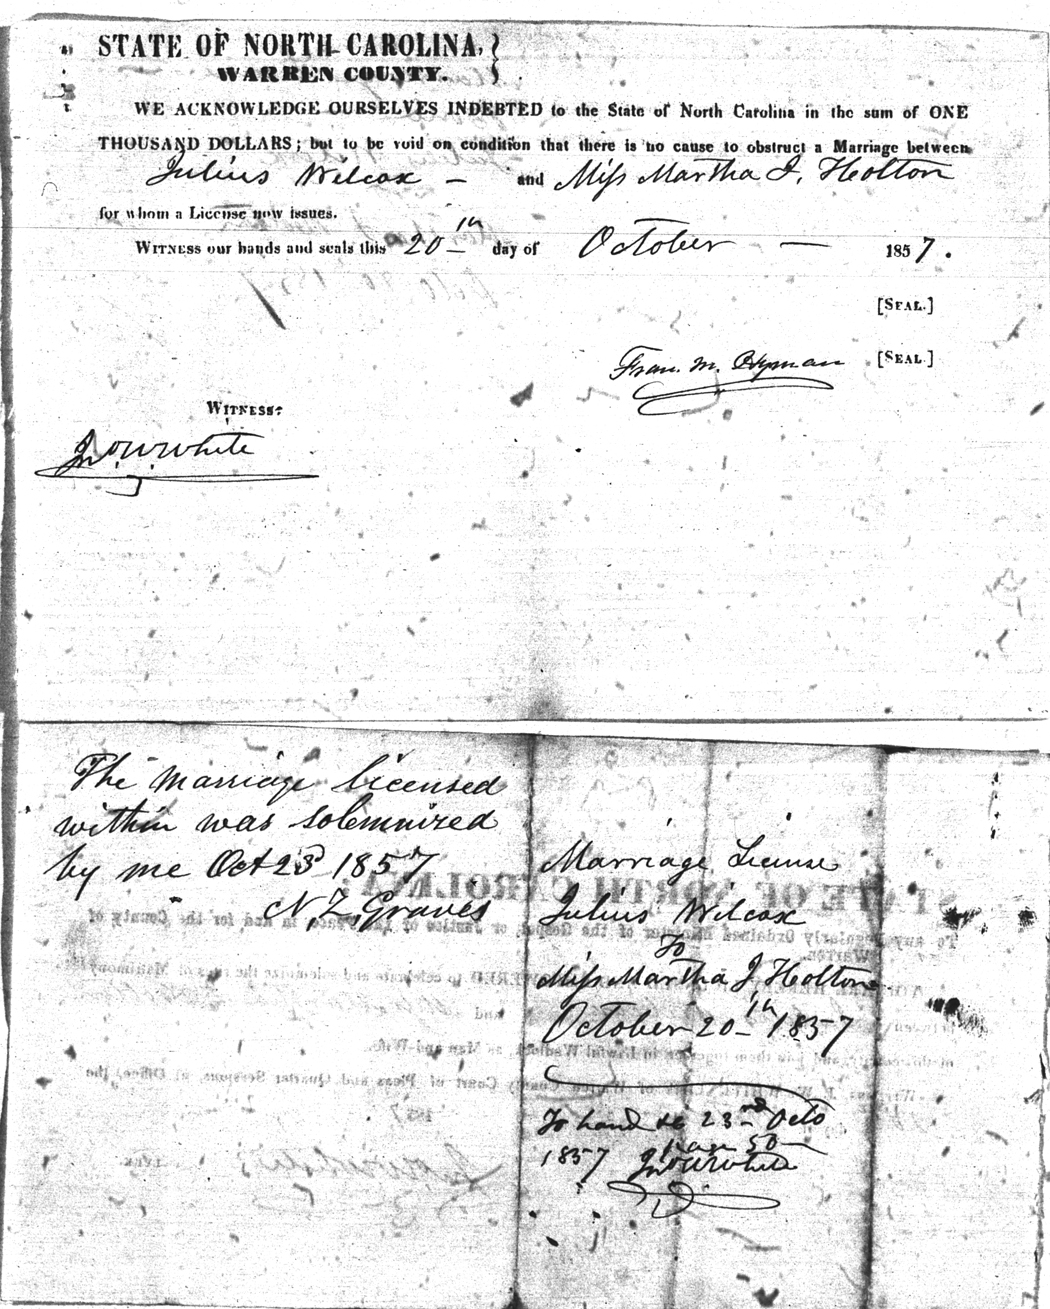 STATE OF NORTH CAROLINA,
WARREN COUNTY.
WE ACKNOWLEDGE OURSELVES INDEBTED to the State of North Carolina in the sum of ONE
THOUSAND DOLLARS; but to be void on condition that there is no cause to obstruct a Marriage between
Julius Wilcox — and Miss Martha J. Holton
for whom a License now issues.
WITNESS our hands and seals this 20th day of October — 1857.
[SEAL.]
Fran. M. Hyman [SEAL.]
WITNESS:
Jno. W. White
The marriage licensed
within was solemnized
by me Oct 23d 1857
N. Z. Graves
Marriage License
Julius Wilcox
To
Miss Martha J Holton
October 20th 1857
To hand 23nd Octo
page 50
1857 Jno W White